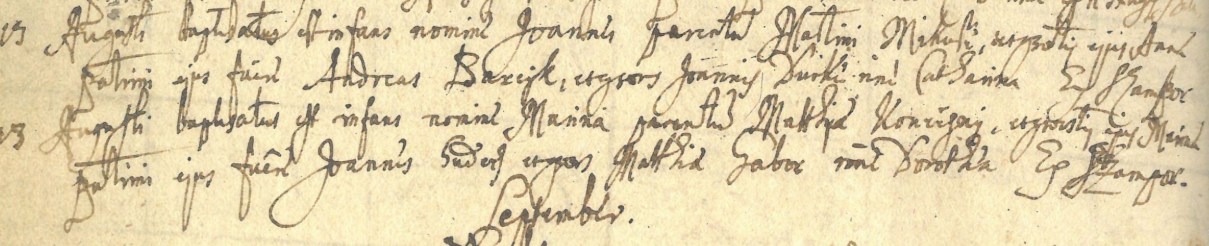 13 Augusti baptisatus est infans nomine Joannes parentũ Martini Mikuss, et uxoris ejus Annae
patrini ejus fuere Andreas Barcjk, et uxor Joannis Durki nomine Catharina Ex Szampor
13 Augusti baptisatus est infans nomine Marina parentũ Matthiae Konczjar, et uxoris ejus Marinae
patrini ejus fuere Joannes et uxor Matthiae Gabor nomine Dorothea Ex Szampor.
September.